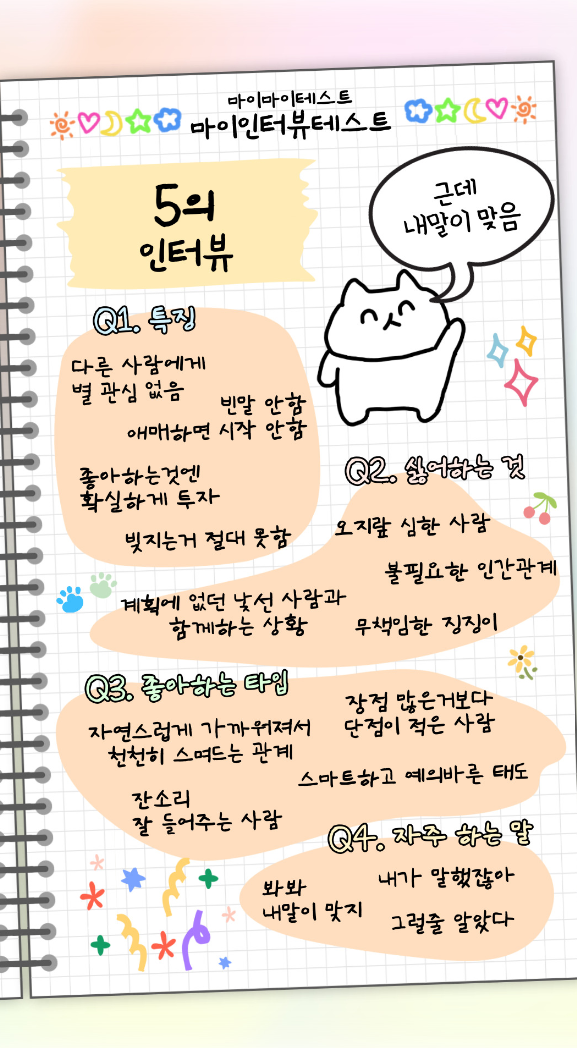 마이마이테스트
마이인터뷰테스트
5의
인터뷰
근데
내말이 맞음
Q1. 특징
다른 사람에게
별 관심 없음
빈말 안함
애매하면 시작 안함
좋아하는것엔
확실하게 투자
빚지는거 절대 못함
Q2. 싫어하는 것
오지랖 심한 사람
불필요한 인간관계
계획에 없던 낯선 사람과
함께하는 상황
무책임한 징징이
Q3. 좋아하는 타입
자연스럽게 가까워져서
천천히 스며드는 관계
장점 많은거보다
단점이 적은 사람
스마트하고 예의바른 태도
잔소리
잘 들어주는 사람
Q4. 자주 하는 말
봐봐
내말이 맞지
내가 말했잖아
그럴줄 알았다